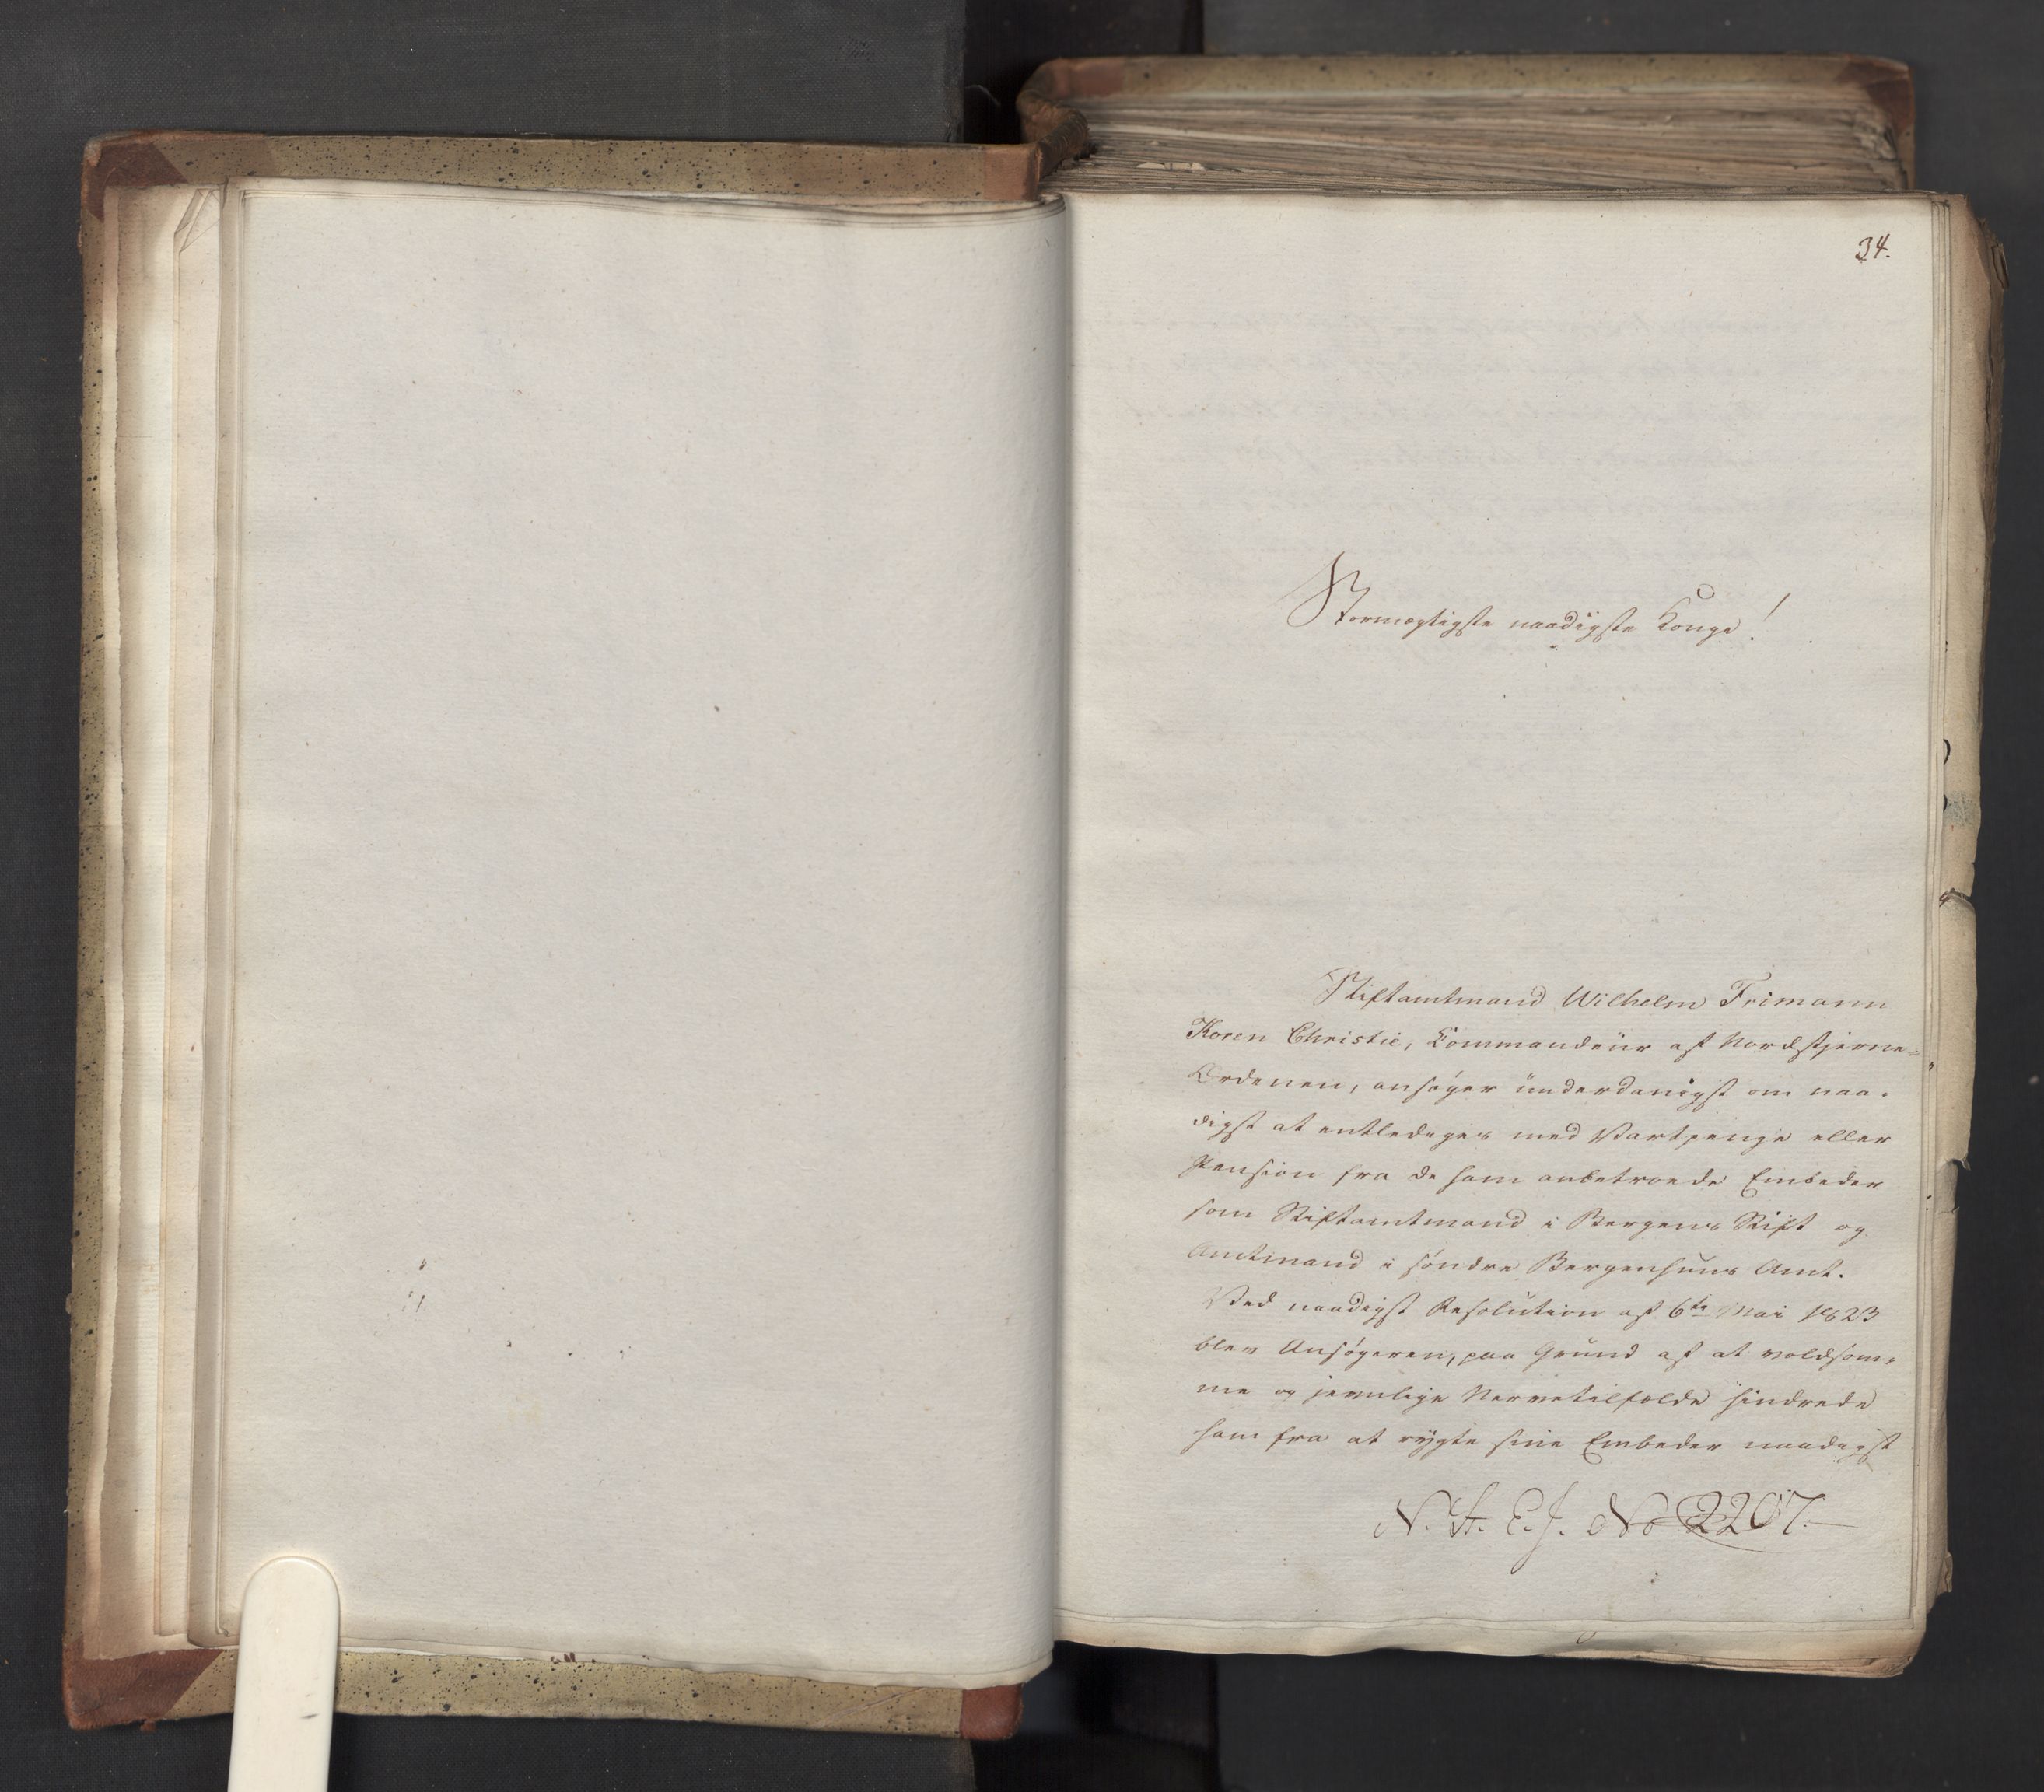 34.
Stormægtigste naadigste Konge!
Stiftamtmand Wilhelm Frimann
Koren Christie, Commandeur af Nordstjerne-
Ordenen, ansøger underdanigst om naa-
digst at entlediges med Vartpenge eller
Pension fra de ham anbetroede Embeder
som Stiftamtmand i Bergens Stift og
Amtmand i søndre Bergenhuus Amt.
Ved naadigst Resolution af 6te Mai 1823
blev Ansøgeren, paa Grund af at voldsom-
me og jevnlige Nervetilfælde hindrede
ham fra at røgte sine Embeder naadigst
N. St. E. J. No 2207.